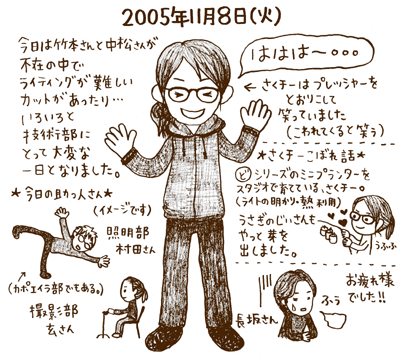 2005年11月8日(火)
今日は竹本さんと中松さんが
不在の中で
ライティングが難しい
カットがあったり…
いろいろと
技術部に
とって大変な
一日となりました。
はははは〜…
← さくチーはプレッシャーを
とおりこして
笑っていました
(こわれてくると笑う)
★さくチーこぼれ話★
どシリーズのミニプランターを
スタジオで育てている、さくチー。
(ライトの明かり・熱 利用)
うさぎのじいさんも
やっと芽を
出しました。
うふふ
★今日の助っ人さん★
(イメージです)
照明部
村田さん
(カポエイラ部でもある。)
撮影部
玄さん
長坂さん
ふぅ
お疲れ様
でした!!